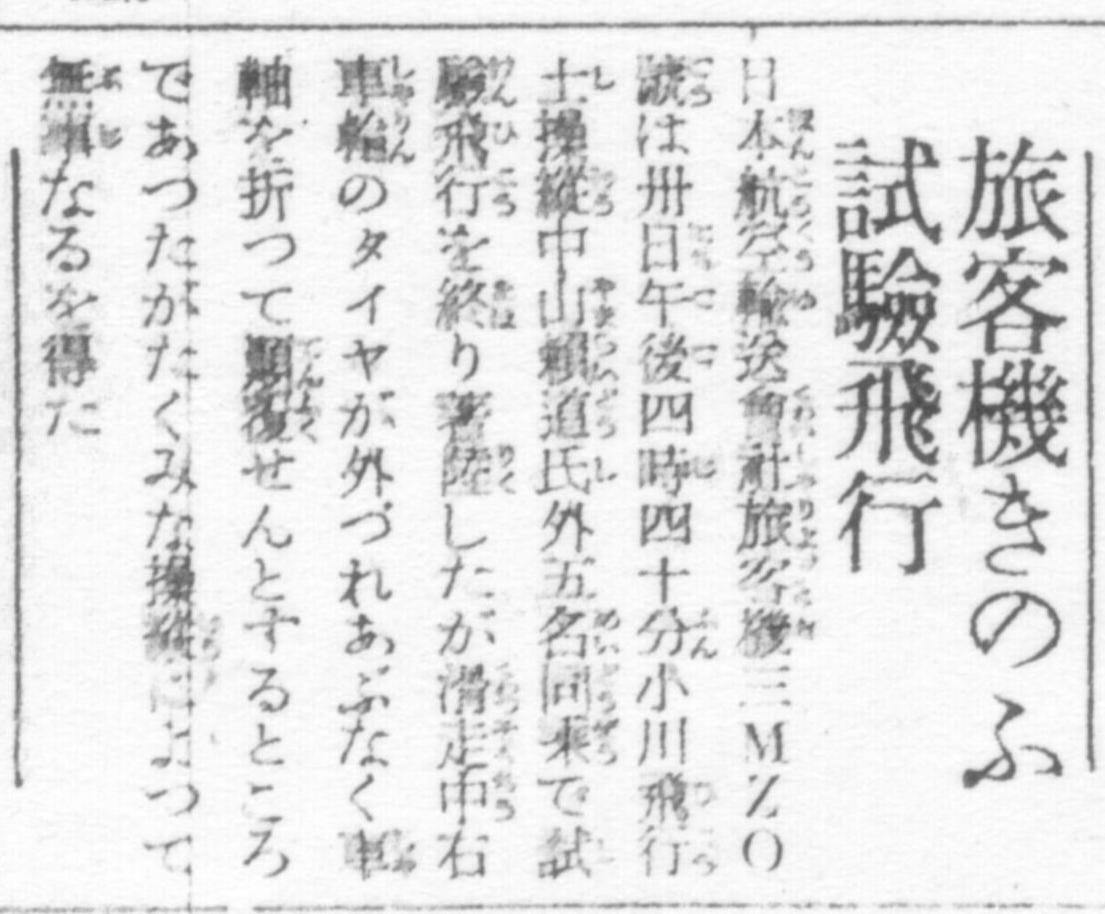 旅客機きのふ
試驗飛行
日本航空輸送會社旅客機三MZO
號は卅日午後四時四十分小川飛行
士操縱中山賴道氏外五名同乘で試
驗飛行を終り著陸したが滑走中右
車輪のタイヤが外づれあぶなく車
軸を折つて顚覆せんとするところ
であつたがたくみな操縱によつて
無事なるを得た